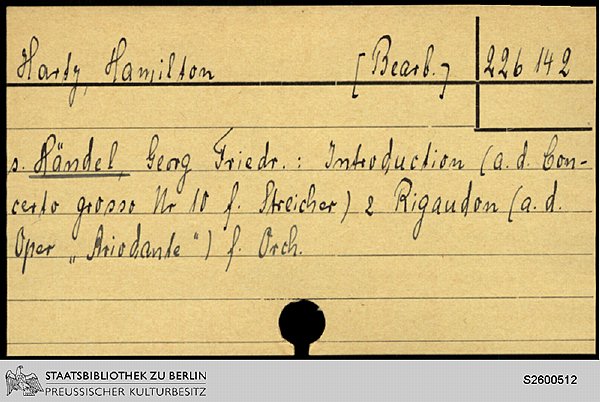 Harty, Hamilton [Bearb.] 226 142
s. Händel, Georg Friedr.: Introduction (a. d. Con-
certo grosso Nr 10 f. Streicher) & Rigaudon (a. d.
Oper „Ariodante“) f. Orch.
STAATSBIBLIOTHEK ZU BERLIN
PREUSSISCHER KULTURBESITZ
S2600512